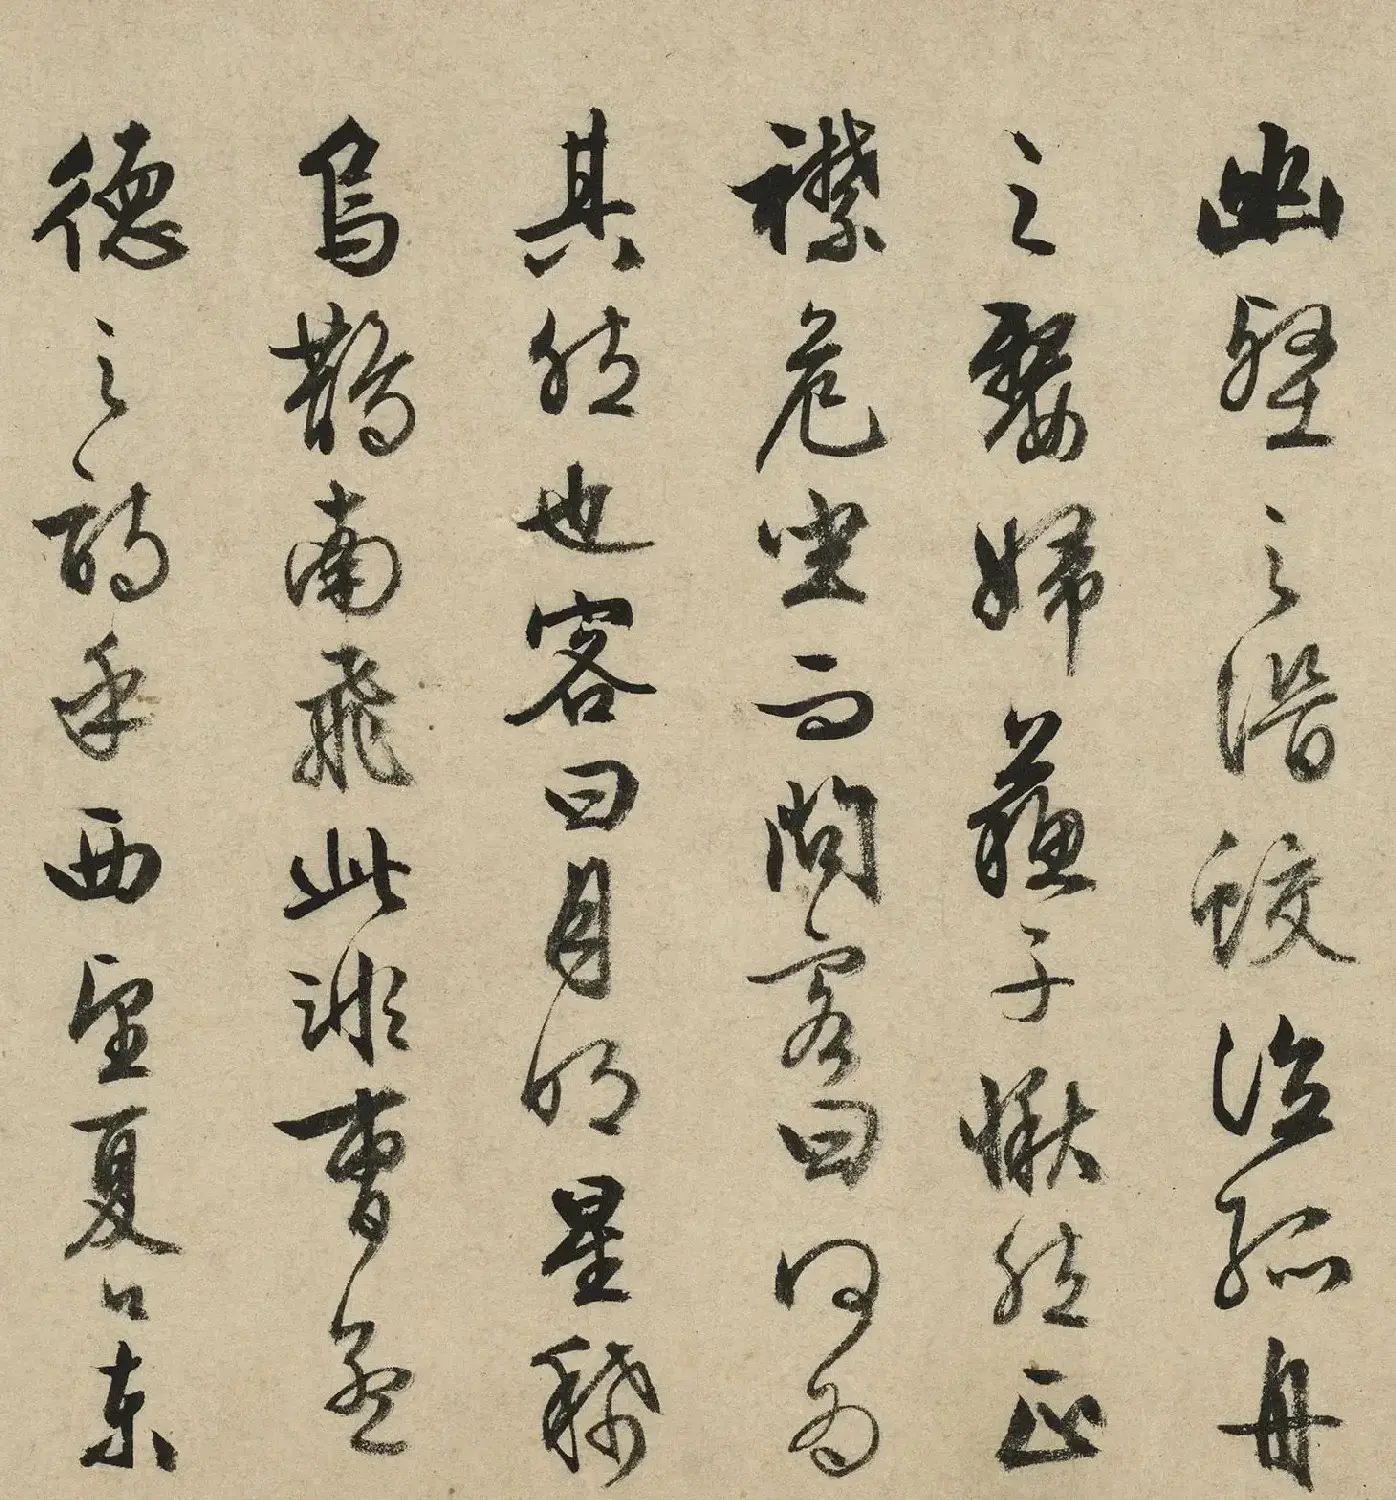 幽壑之潛蛟泣孤舟
之嫠婦蘇子愀然正
襟危坐而問客曰何為
其然也客曰月明星稀
烏鵲南飛此非曹孟
德之詩乎西望夏口東